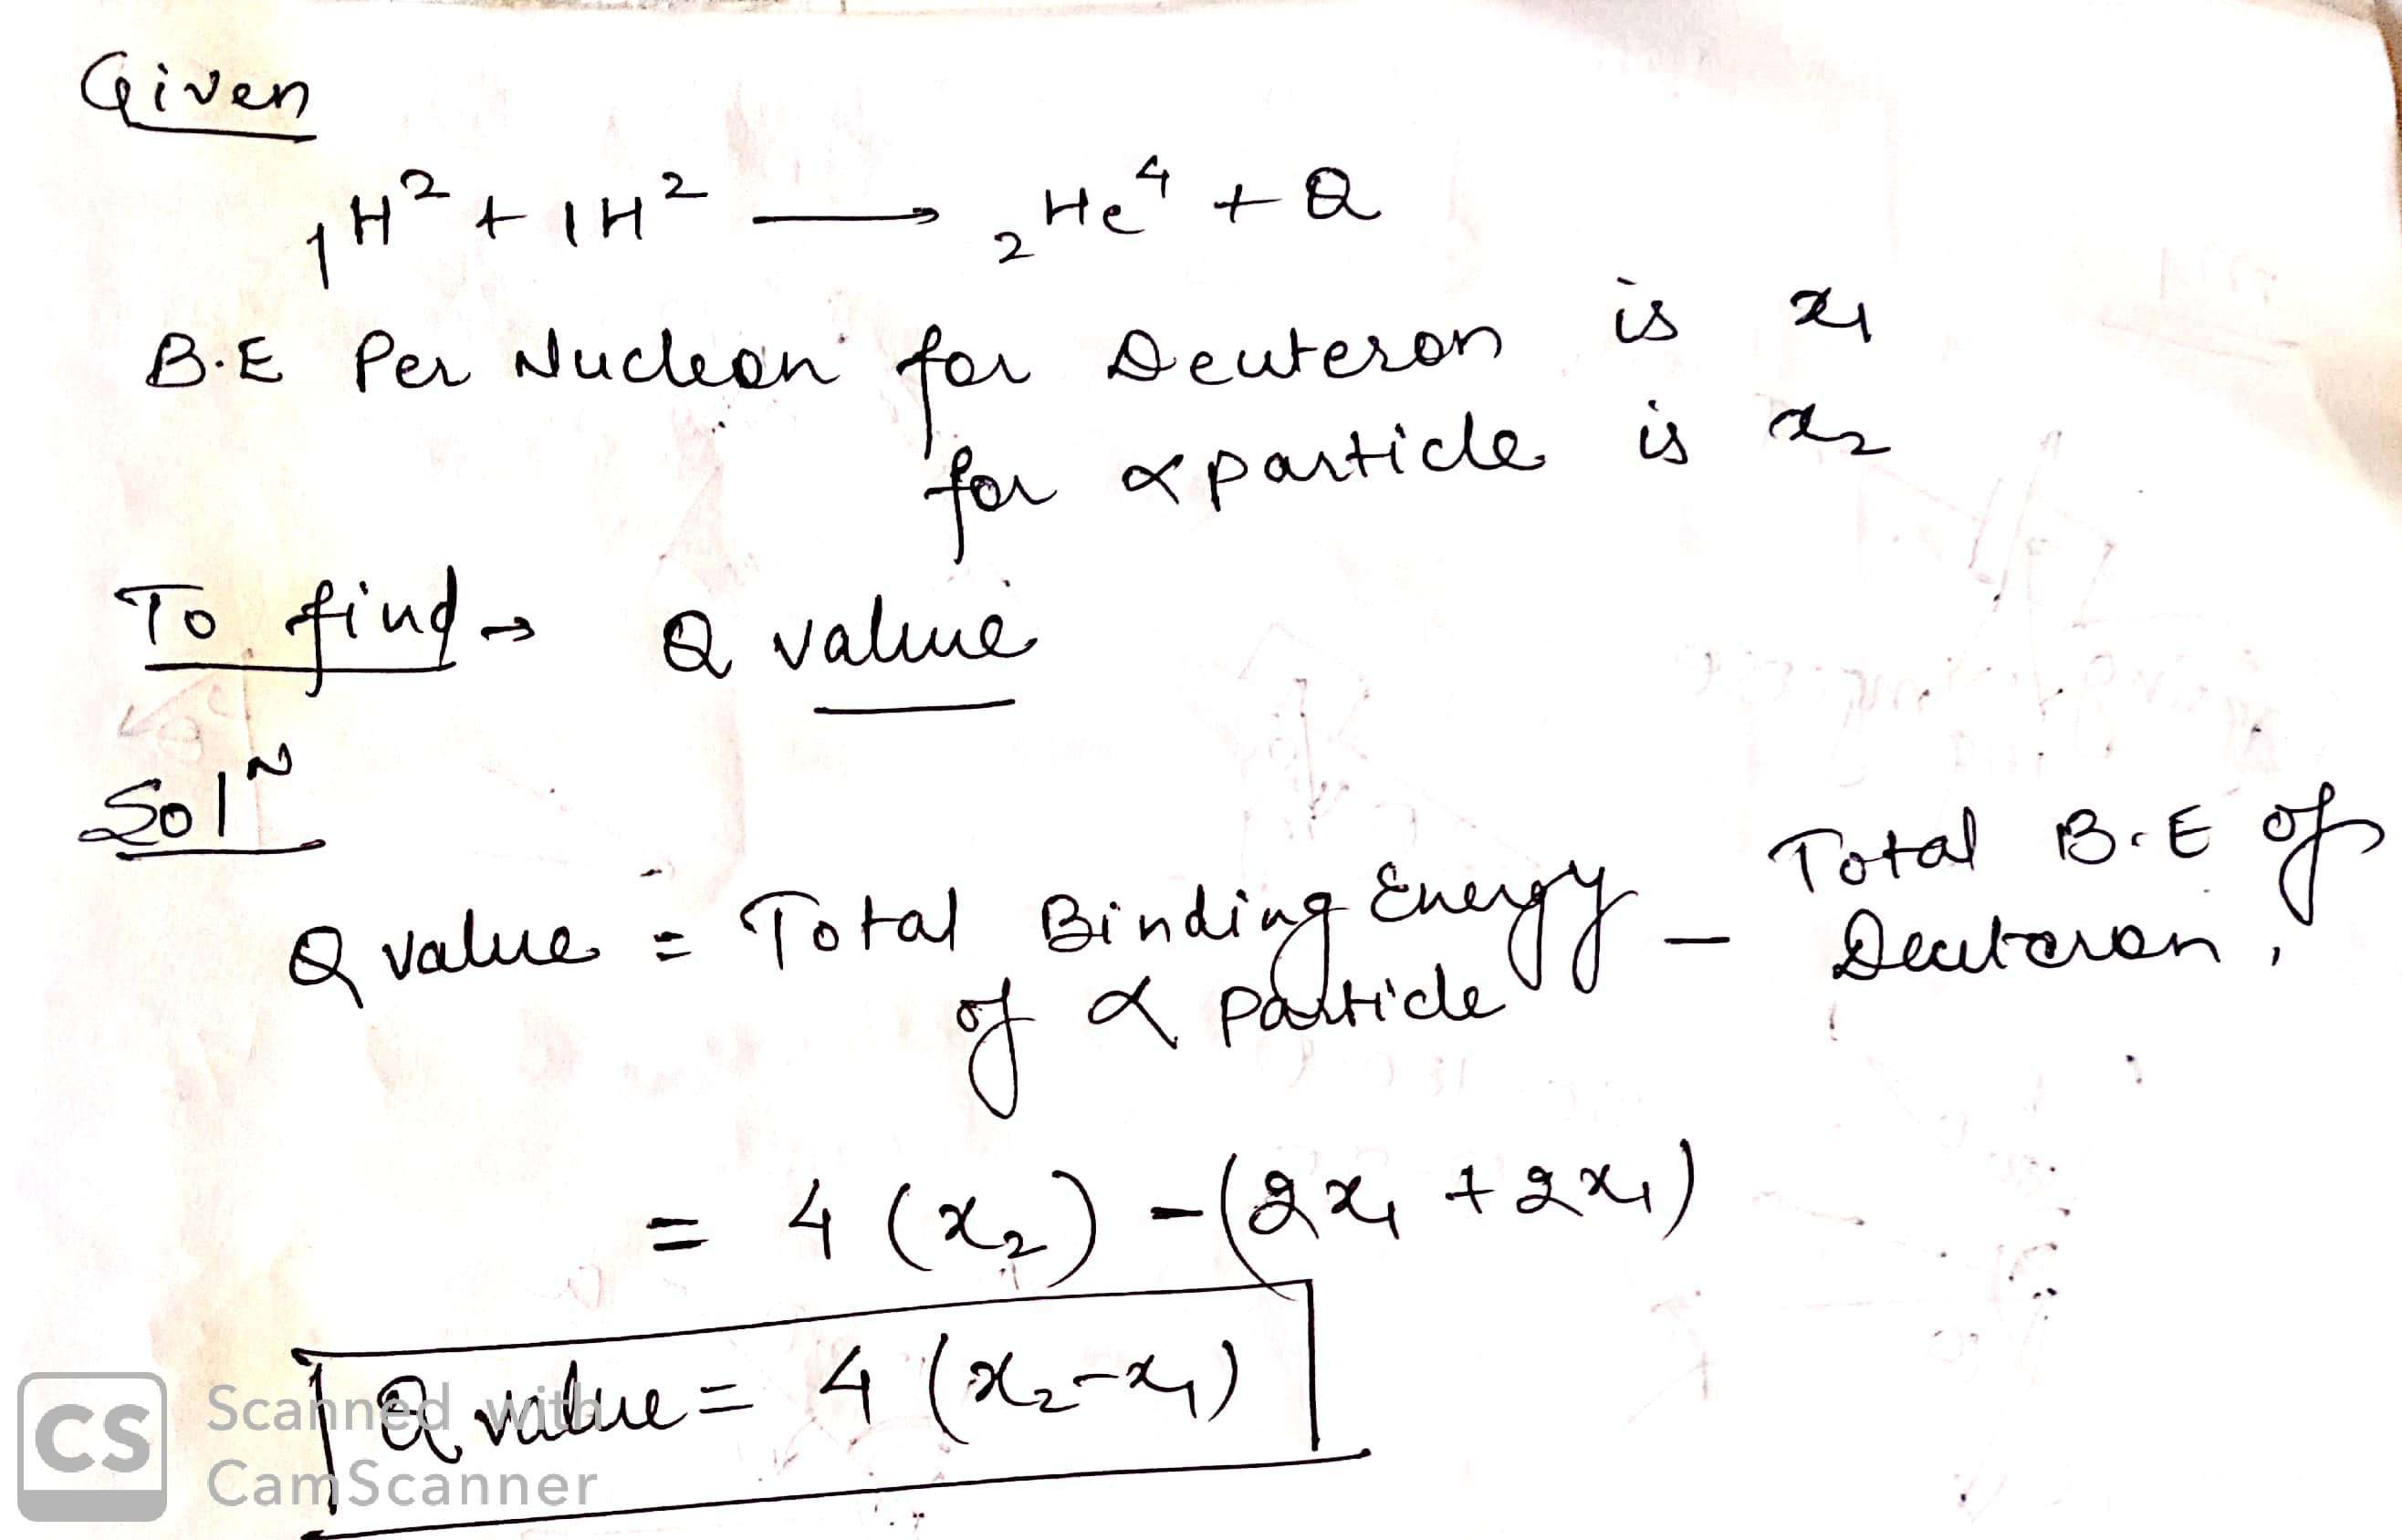 Given
₁H² + 1H² → ₂He⁴ + Q
B.E Per Nucleon for Deuteron is x₁
for α particle is x₂
To find → Q value
Solⁿ
Q value = Total Binding Energy of α particle - Total B.E of Deuteron,
= 4 (x₂) - (2x₁ + 2x₁)
Q value = 4 (x₂-x₁)
CS Scanned with
CamScanner